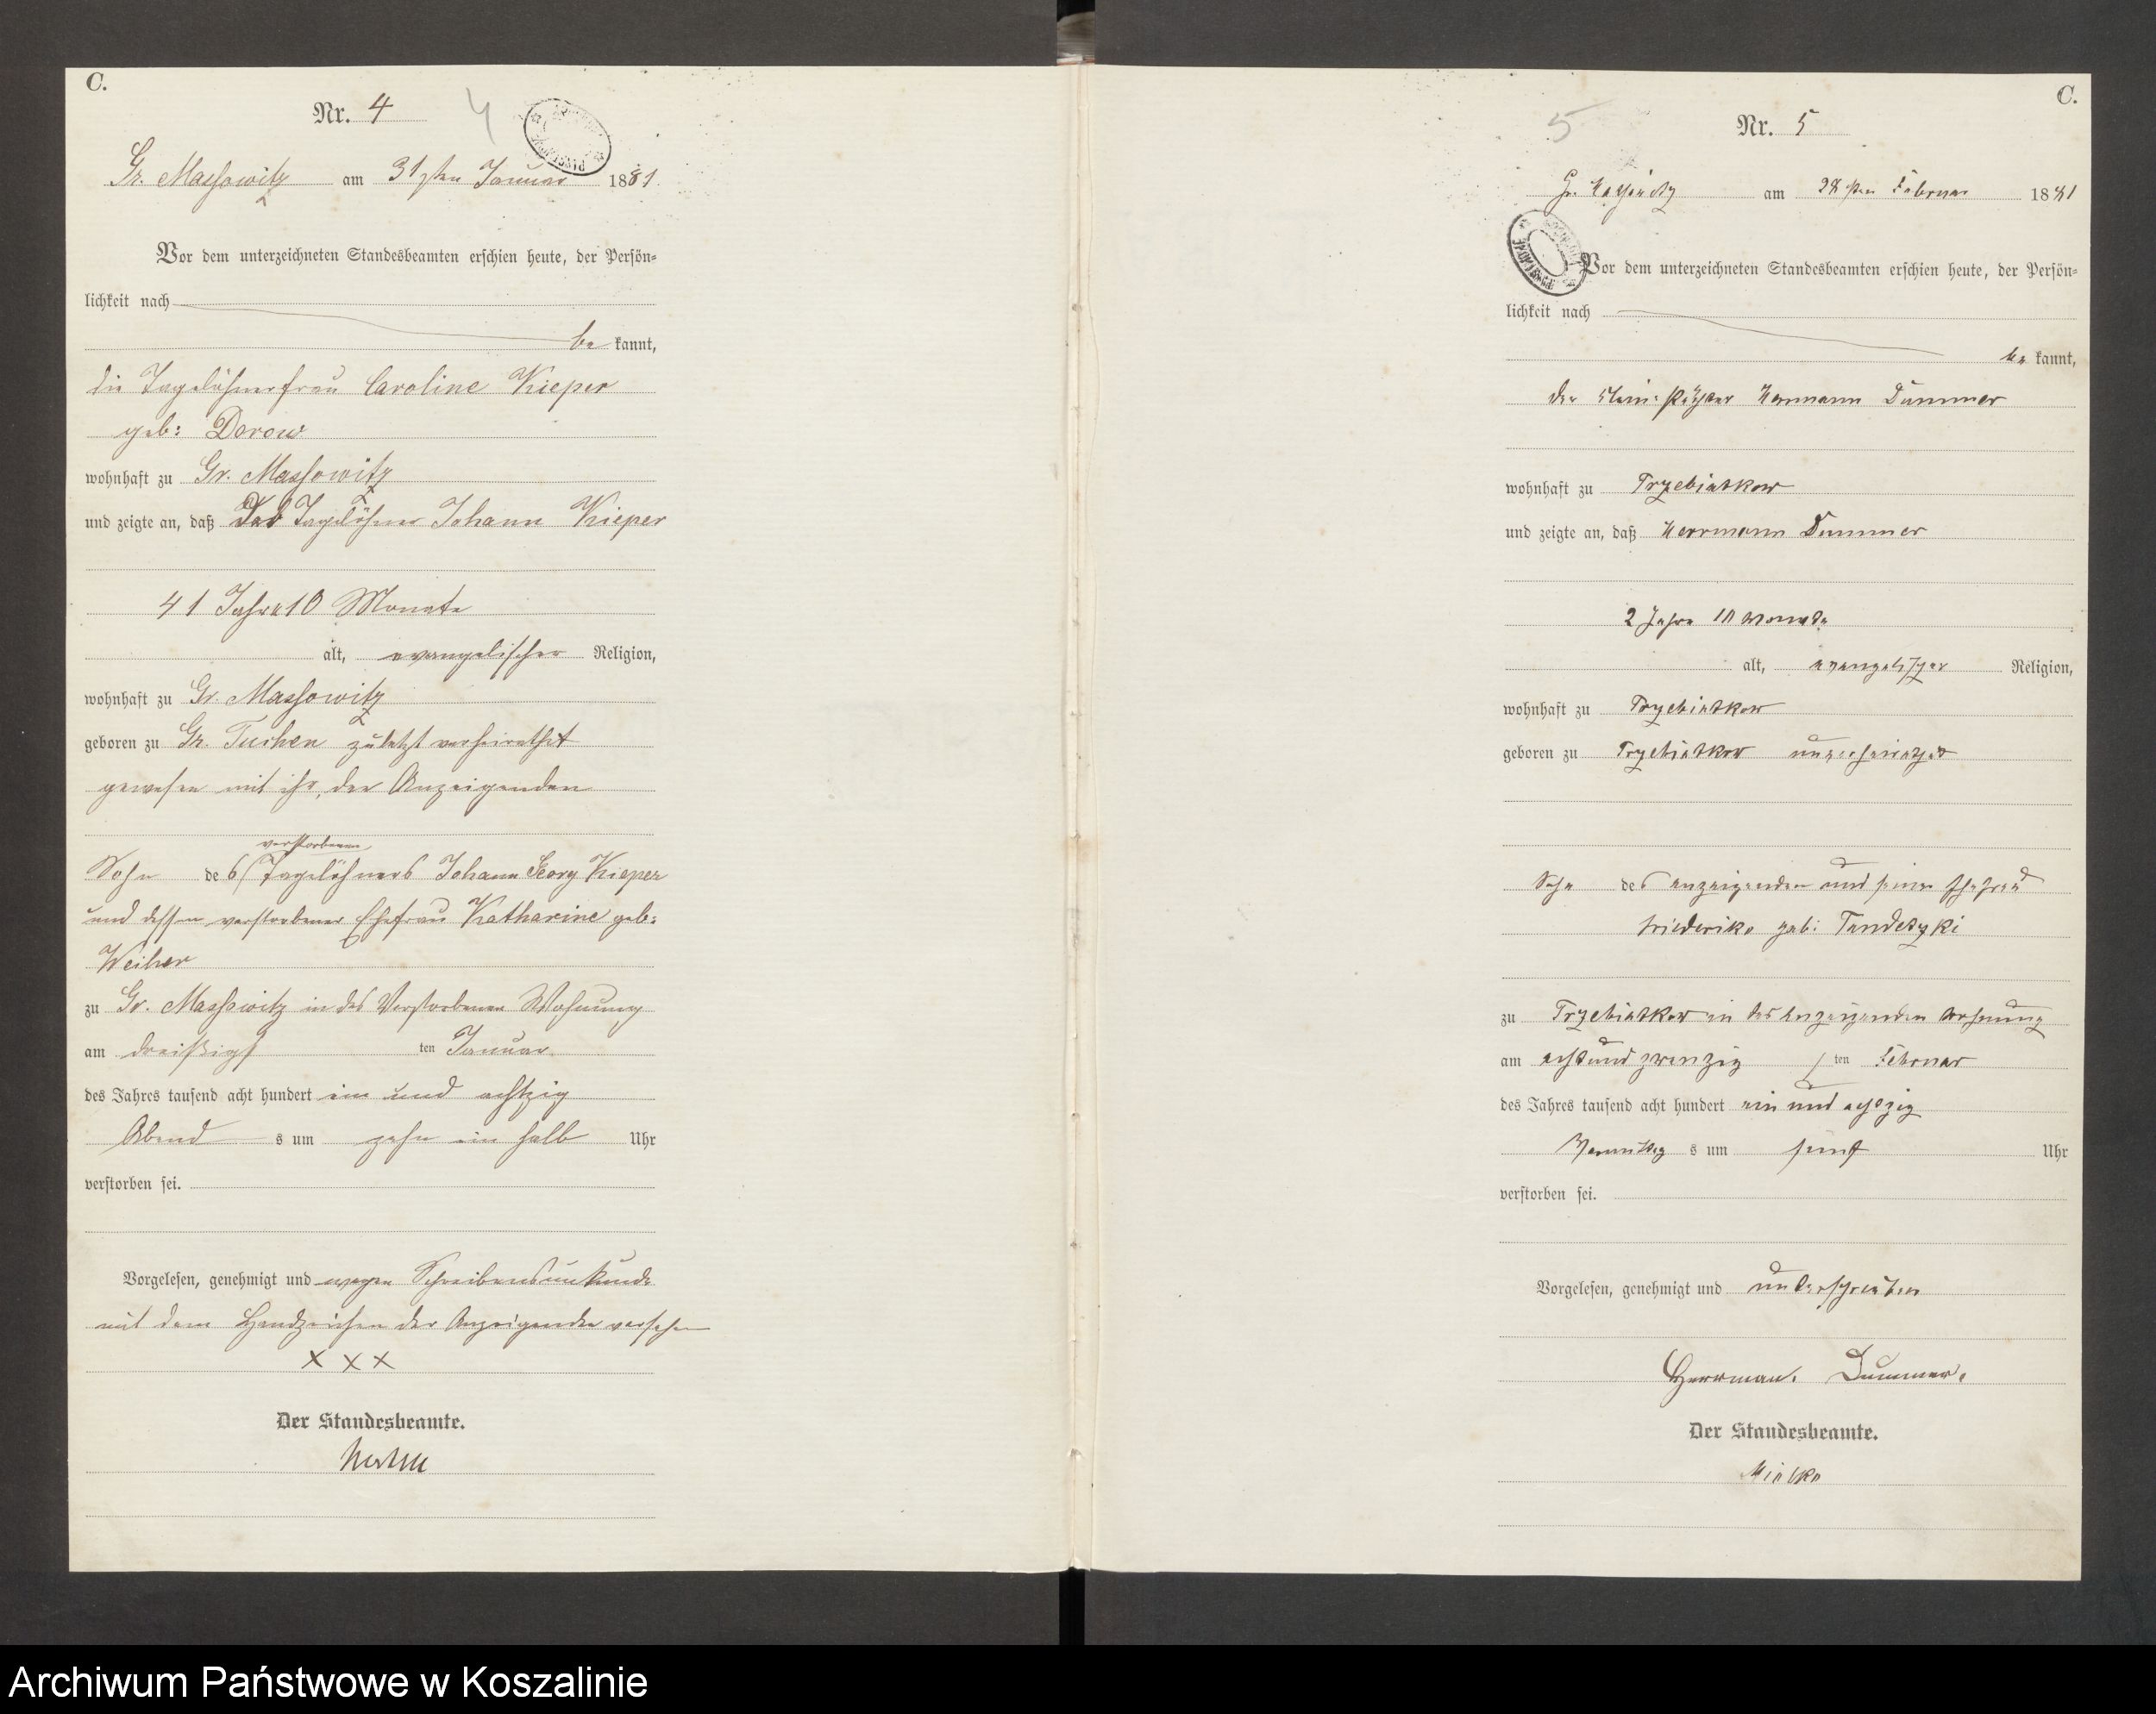 C.
Nr. 4
4
Gr. Massowitz am 31sten Januar 1881
Vor dem unterzeichneten Standesbeamten erschien heute, der Persön=
lichkeit nach
be kannt,
die Tagelöhnerfrau Caroline Kieper
geb: Dorow
wohnhaft zu Gr. Massowitz
und zeigte an, daß Der Tagelöhner Johann Kieper
41 Jahre 10 Monate
alt, evangelischer Religion,
wohnhaft zu Gr. Massowitz
geboren zu Gr. Tuchen zuletzt verheirathet
gewesen mit ihr, der Anzeigenden
verstorbenen
Sohn des Tagelöhners Johann Georg Kieper
und dessen verstorbener Ehefrau Katharine geb:
Weiher
zu Gr. Massowitz in des Verstorbenen Wohnung
am dreißigs ten Januar
des Jahres tausend acht hundert ein und achtzig
Abend s um zehn ein halb Uhr
verstorben sei.
Vorgelesen, genehmigt und wegen Schreibensunkunde
mit dem Handzeichen der Anzeigenden versehen
x x x
Der Standesbeamte.
C.
Nr. 5
5
Gr. Massowitz am 28sten Februar 1881
Vor dem unterzeichneten Standesbeamten erschien heute, der Persön=
lichkeit nach
be kannt,
der Herrmann Dummer
wohnhaft zu Trzebiatkow
und zeigte an, daß Herrmann Dummer
2 Jahre 10 Monate
alt, evangelischer Religion,
wohnhaft zu Trzebiatkow
geboren zu Trzebiatkow unverheirathet
Sohn des Anzeigenden und seiner Ehefrau
Friederike geb: Tandetzki
zu Trzebiatkow in des Anzeigenden Wohnung
am achtundzwanzigs ten Februar
des Jahres tausend acht hundert ein und achtzig
Vormittag s um fünf Uhr
verstorben sei.
Vorgelesen, genehmigt und unterschrieben
Herrman. Dummer.
Der Standesbeamte.
Mielke
Archiwum Państwowe w Koszalinie